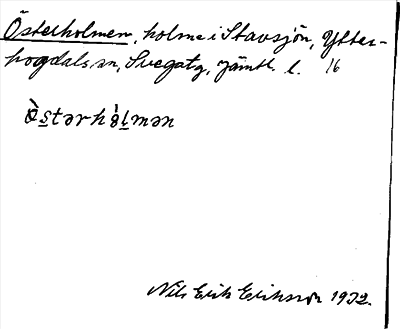 Österholmen, holme i Stavsjön, Ytter-
hogdals sn, Svegs tg, Jämtl. l. 16
ò̈s̠tərhò̥l̠mən
Nils Erik Eriksson 1932.